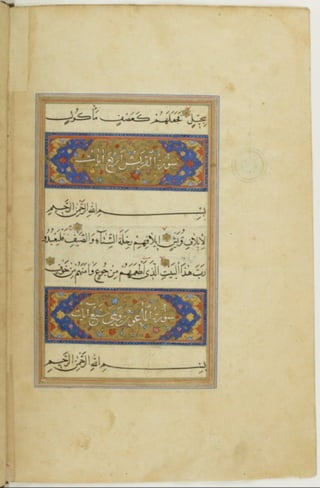 سجيل فجعلهم كعصف ماكول
سورة القريش اربع ايات
بسم الله الرحمن الرحيم
لايلاف قريش ايلافهم رحلة الشتاء والصيف فليعبدوا
رب هذا البيت الذي اطعمهم من جوع وامنهم من خوف
سورة الماعون وهي سبع ايات
بسم الله الرحمن الرحيم